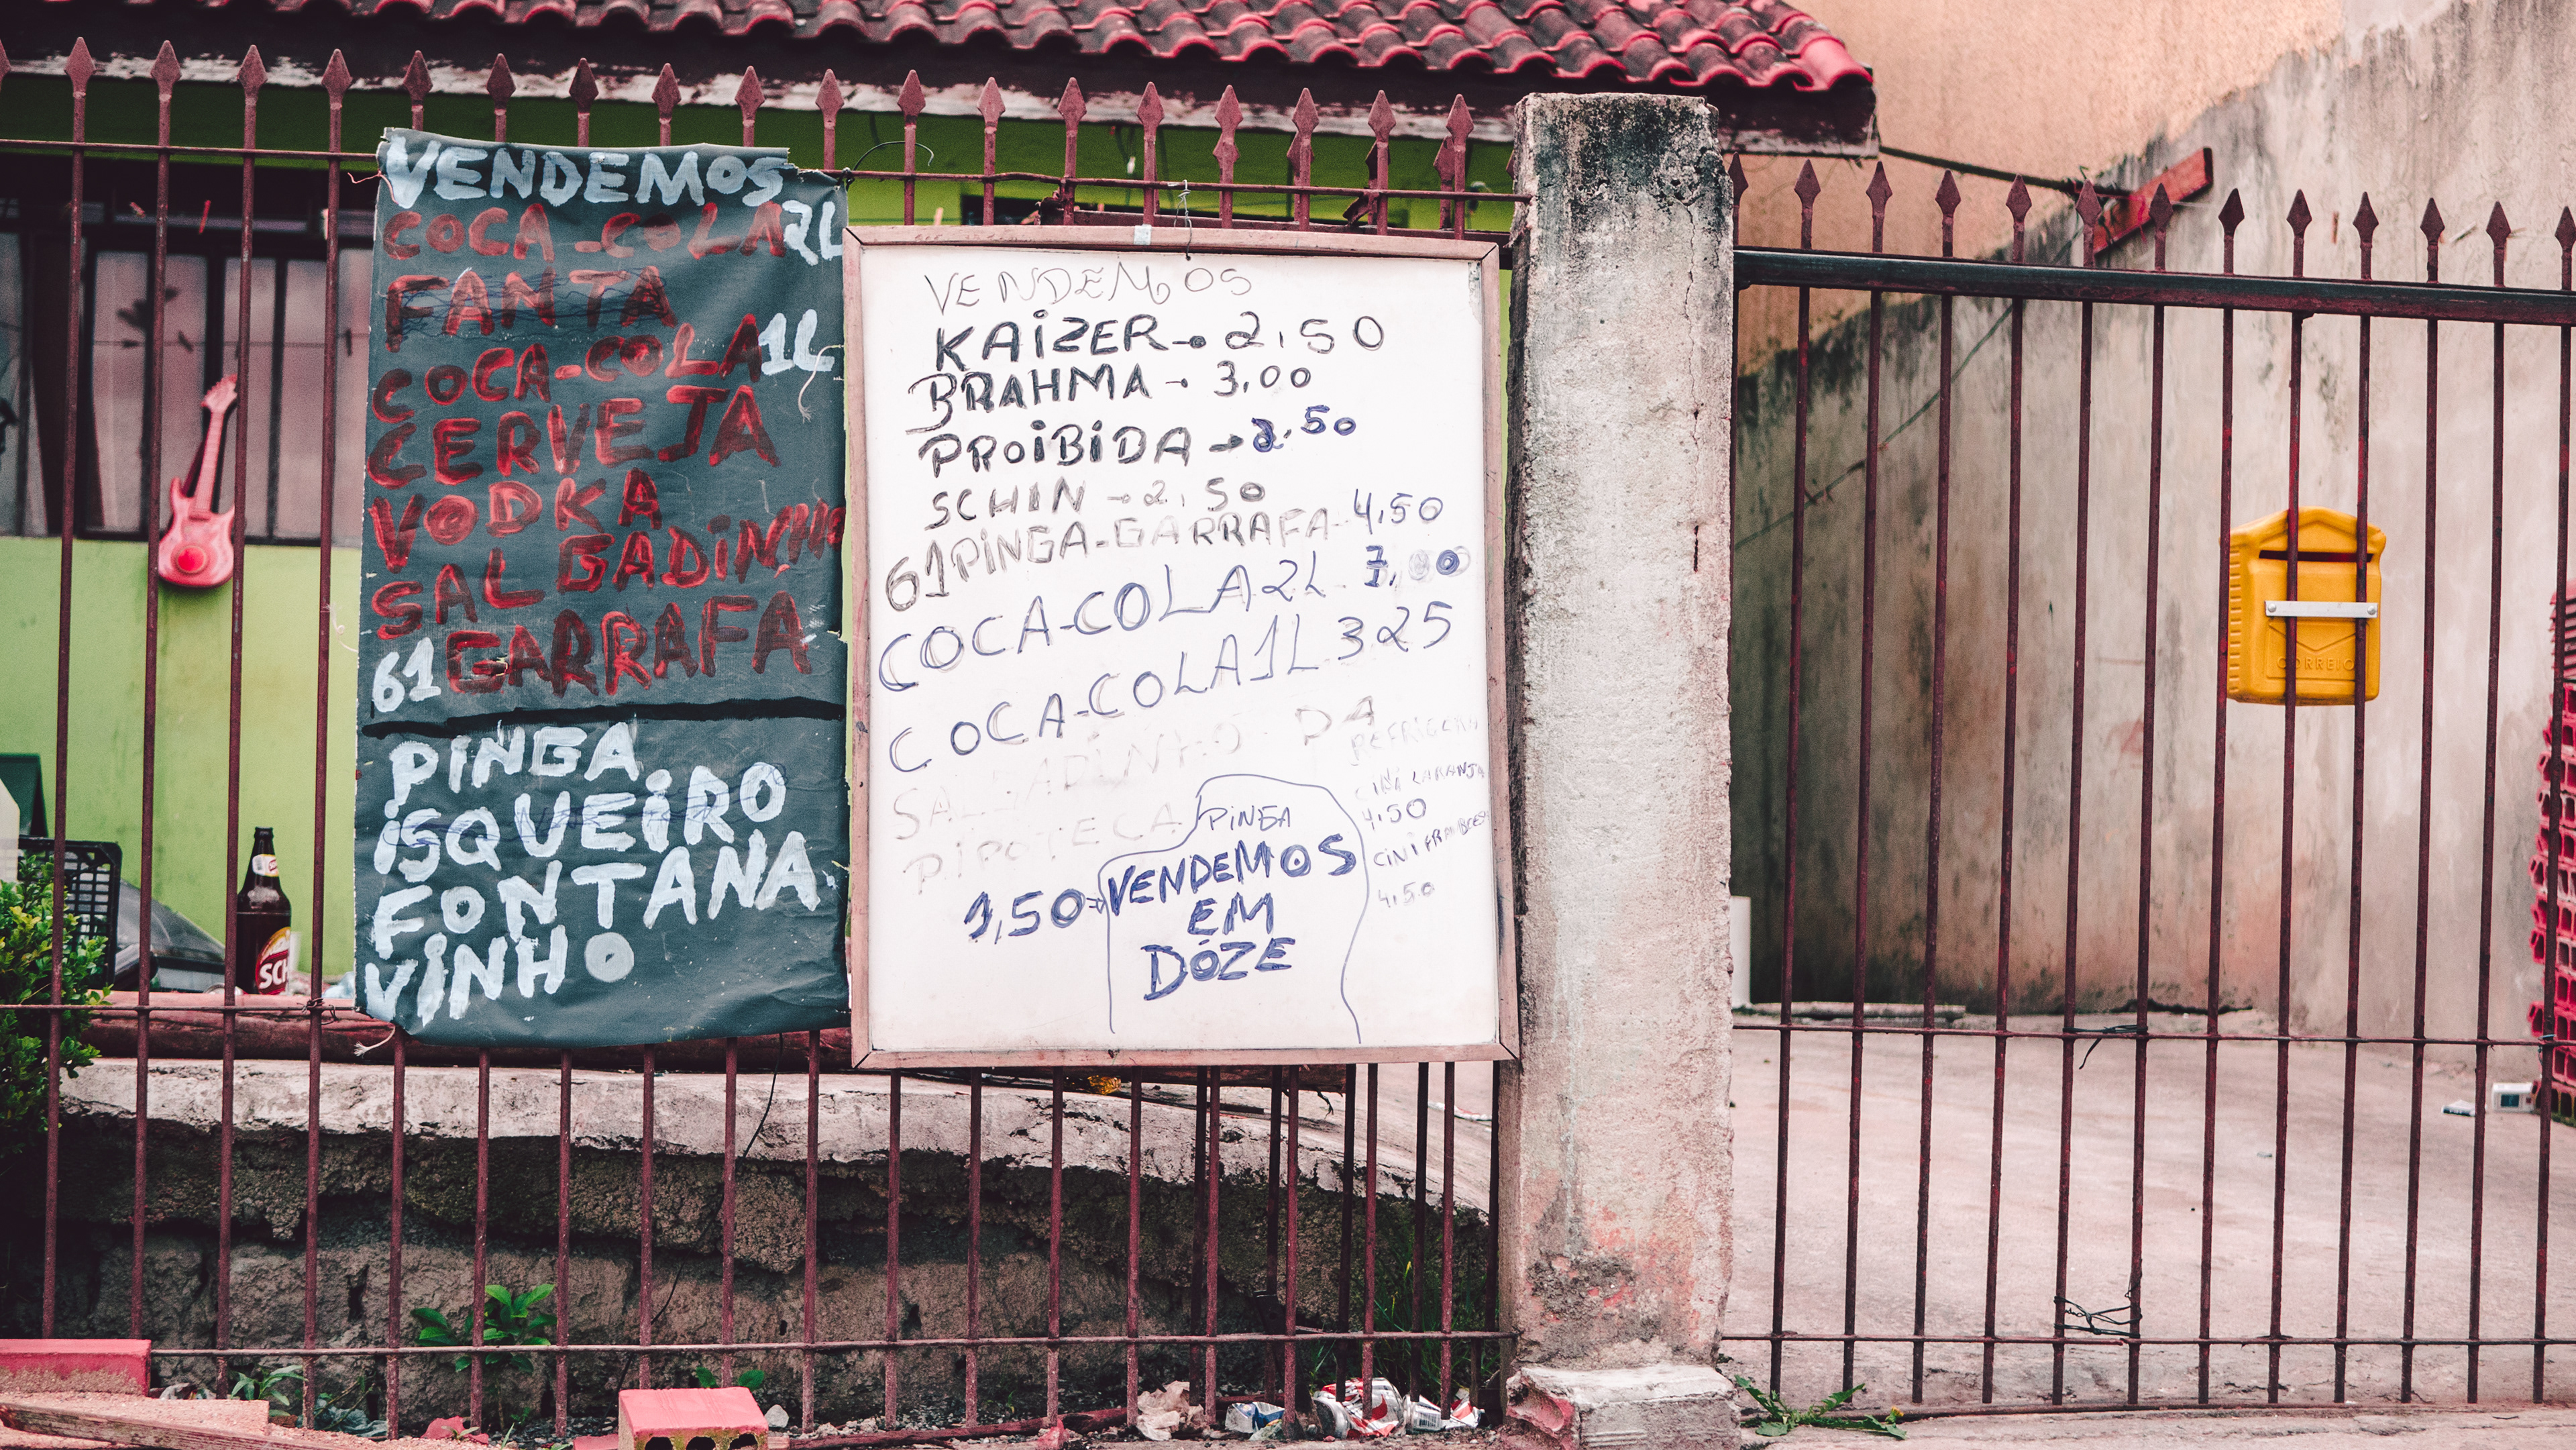 VENDEMOS
COCA-COLA 2L
FANTA
COCA-COLA 1L
CERVEJA
VODKA
SALGADINHO
61 GARRAFA
PINGA
ISQUEIRO
FONTANA.
VINHO
VENDEMOS
KAIZER → 2,50
BRAHMA → 3,00
PROIBIDA → 2,50
SCHIN → 2,50
61 PINGA-GARRAFA- 4,50
COCA-COLA 2L. 7,00
COCA-COLA 1L 3 25
SALGADINHO
PIPOTECA
CINI LARANJA
4,50
CINI
4,50
PINGA
1,50 VENDEMOS
EM
DÓZE
SCH
CORREIO